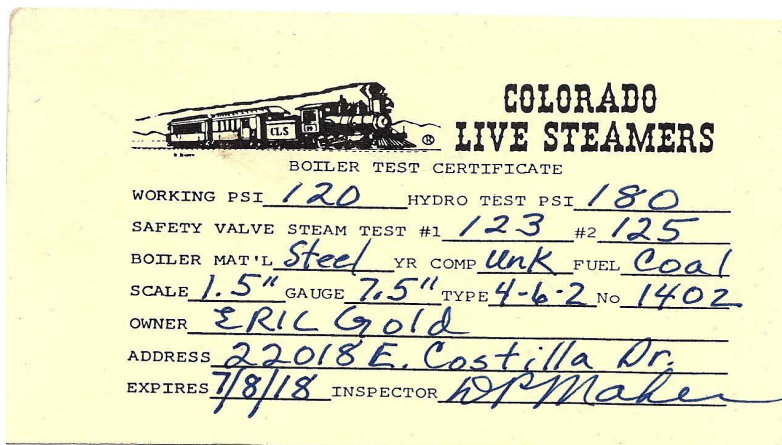 COLORADO
LIVE STEAMERS
CLS
®
BOILER TEST CERTIFICATE
WORKING PSI 120 HYDRO TEST PSI 180
SAFETY VALVE STEAM TEST #1 123 #2 125
BOILER MAT'L Steel YR COMP Unk FUEL Coal
SCALE 1.5" GAUGE 7.5" TYPE 4-6-2 No 1402
OWNER ERIC Gold
ADDRESS 22018 E. Costilla Dr.
EXPIRES 7/8/18 INSPECTOR DPMaher